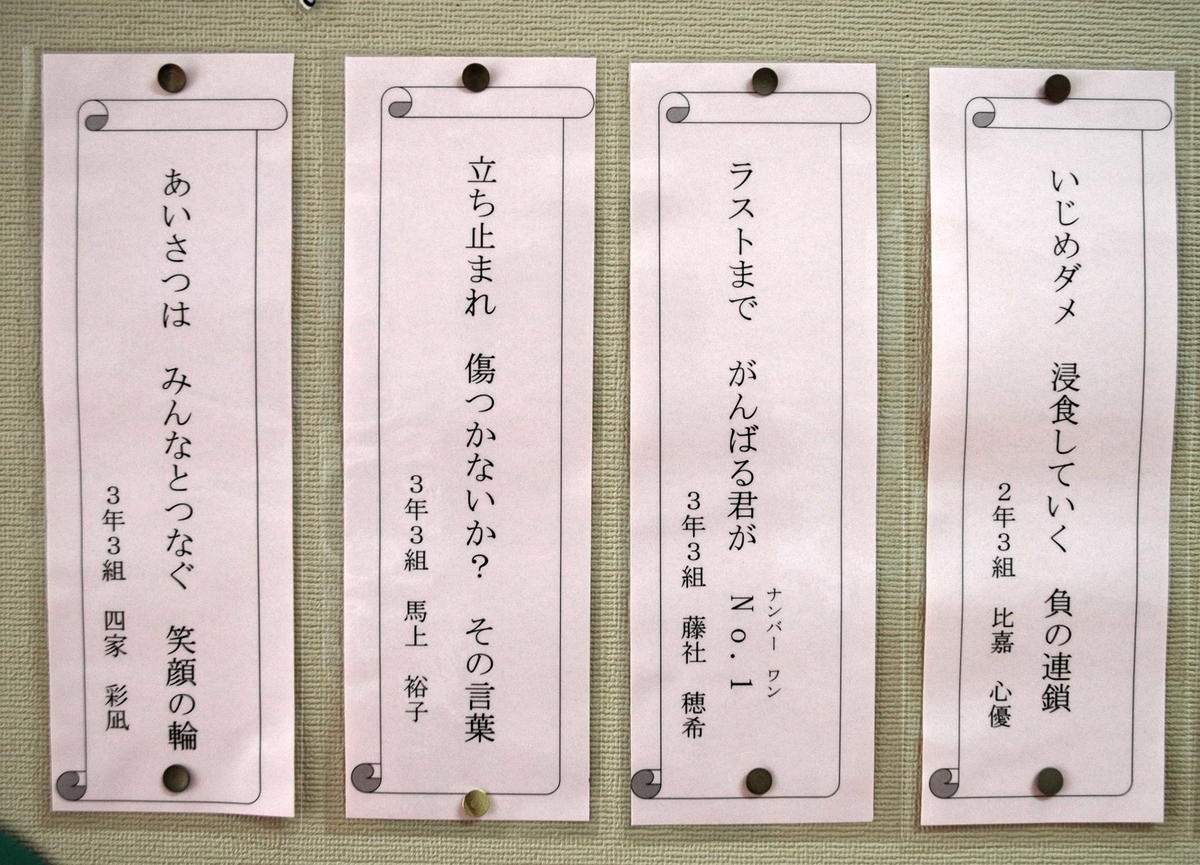 いじめダメ　浸食していく　負の連鎖
２年３組　比嘉　心優
ラストまで　がんばる君が　Ｎｏ．１
ナンバー　ワン
３年３組　藤社　穂希
立ち止まれ　傷つかないか？　その言葉
３年３組　馬上　裕子
あいさつは　みんなとつなぐ　笑顔の輪
３年３組　四家　彩凪